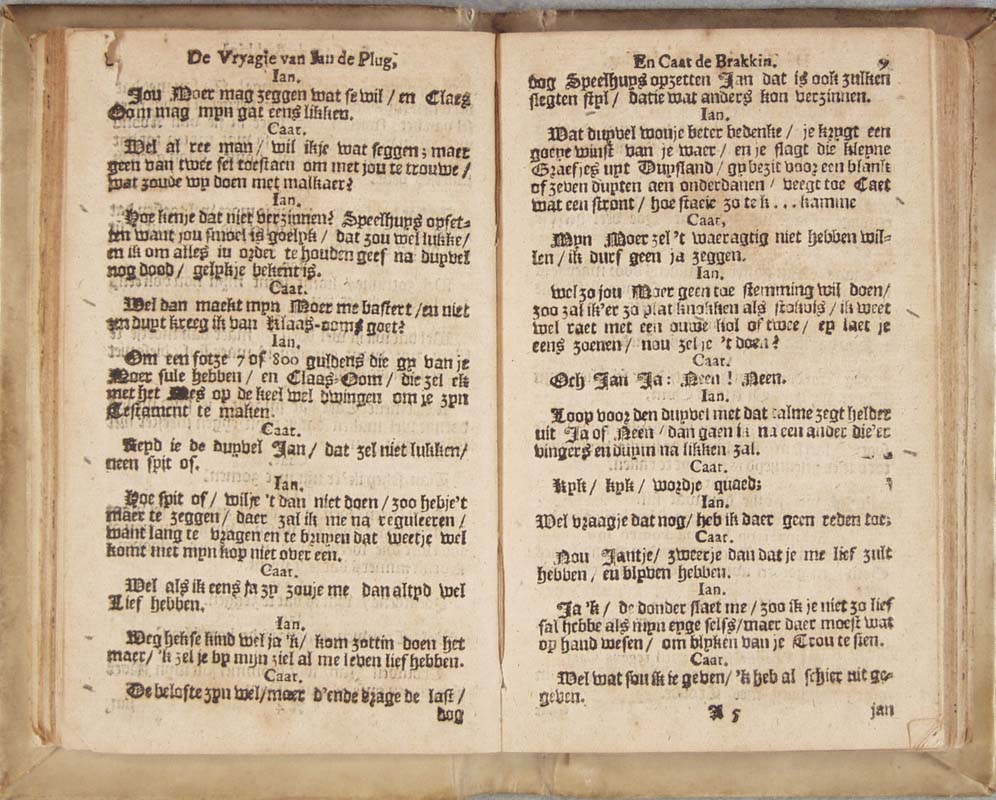 De Vryagie van Jan de Plug,
Ian.
Jou Moer mag zeggen wat se wil / en Claes
Oom mag myn gat eens likken.
Caat.
Wel al ree man / wil ikje wat seggen; maer
geen van twee sel toestaen om met jou te trouwe /
wat zoude wy doen met malkaer?
Ian.
Hoe kenje dat niet verzinnen? Speelhuys opset-
ten want jou smoel is goelyk / dat zou wel lukke /
en ik om alles in order te houden geef na duyvel
nog dood / gelykje bekent is.
Caat.
Wel dan maekt myn Moer me bastert / en niet
een duyt kreeg ik van Klaas-ooms goet?
Ian.
Om een fotze 7 of 800 guldens die gy van je
Moer sule hebben / en Claas-Oom / die zel ek
met het Mes op de keel wel dwingen om je zyn
Testament te maken.
Caat.
Keyd ie de duyvel Jan / dat zel niet lukken /
neen spit of.
Ian.
Hoe spit of / wilje 't dan niet doen / zoo hebje't
maer te zeggen / daer zal ik me na reguleeren /
want lang te vragen en te bruyen dat weetje wel
komt met myn kop niet over een.
Caat.
Wel als ik eens ja zy zouje me dan altyd wel
Lief hebben.
Ian.
Weg hekse kind wel ja 'k / kom zottin doen het
maer / 'k zel je by myn ziel al me leven lief hebben.
Caat.
De belofte zyn wel / maer d'ende vrage de last /
dog
En Caat de Brakkin. 9
dog Speelhuys opzetten Jan dat is ook zulken
slegten styl / datie wat anders kon verzinnen.
Ian.
Wat duyvel wouje beter bedenke / je krygt een
goeye winst van je waer / en je slagt die kleyne
Graefjes uyt Duysland / gy bezit voor een blank
of zeven duyten aen onderdanen / veegt toe Caet
wat een stront / hoe staeje zo te k ... kamme
Caat,
Myn Moer zel 't waeragtig niet hebben wil-
len / ik durf geen ja zeggen.
Ian.
wel zo jou Moer geen toe stemming wil doen /
zoo zal ik'er zo plat knokken als stokvis / ik weet
wel raet met een ouwe kol of twee / ey laet je
eens zoenen / nou zel je 't doen?
Caat.
Och Jan Ja: Neen! Neen.
Ian.
Loop voor den duyvel met dat talme zegt helder
uit Ja of Neen / dan gaen ik na een ander die'er
vingers en duyim na likken zal.
Caat.
Kyk / kyk / wordje quaed;
Ian.
Wel vraagje dat nog / heb ik daer geen reden toe;
Caat.
Nou Jantje / zweerje dan dat je me lief zult
hebben / en blyven hebben.
Ian.
Ja 'k / de donder slaet me / zoo ik je niet zo lief
sal hebbe als myn eyge selfs / maer daer moest wat
op hand wesen / om blyken van je Trou te sien.
Caat.
Wel wat sou ik je geven / 'k heb al schier uit ge-
geven.
A 5 jan